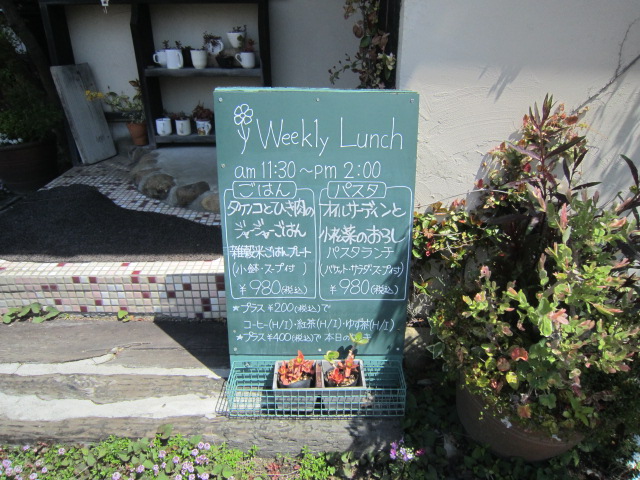 Weekly Lunch
am 11:30～pm 2:00
ごはん
タケノコとひき肉の
ジャージャーごはん
雑穀米ごはんプレート
(小鉢・スープ付)
¥980(税込)
パスタ
オイルサーディンと
小松菜のおろし
パスタランチ
(バケット・サラダ・スープ付)
¥980(税込)
★プラス¥200(税込)で
コーヒー(H/I)・紅茶(H/I)・ゆず茶(H/I)
★プラス¥400(税込)で 本日の